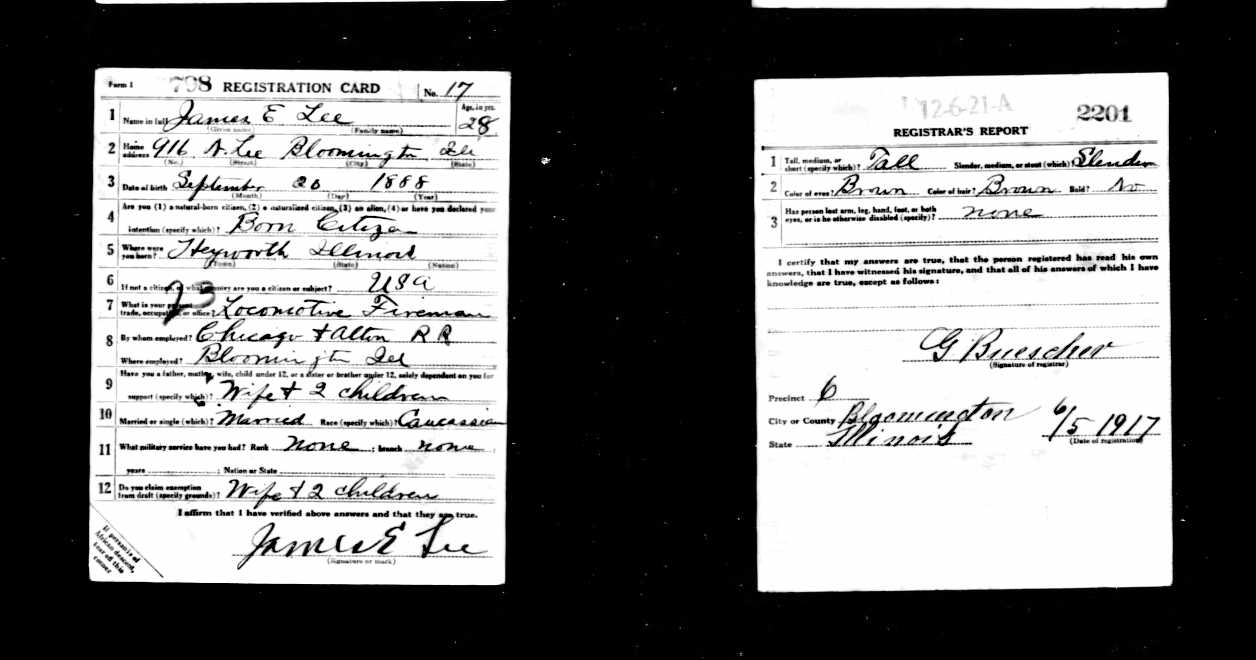 Form 1 798 REGISTRATION CARD No. 17
1 Name in full James E Lee Age, in yrs. 28
(Given name) (Family name)
2 Home address 916 N. Lee Bloomington Ill
(No.) (Street) (City) (State)
3 Date of birth September 20 1888
(Month) (Day) (Year)
Are you (1) a natural-born citizen, (2) a naturalized citizen, (3) an alien, (4) or have you declared your
4 intention (specify which)? Born Citizen
5 Where were you born? Heyworth Illinois
(Town) (State) (Nation)
6 If not a citizen, of what country are you a citizen or subject? USA
73
7 What is your present trade, occupation, or office? Locomotive Fireman
8 By whom employed? Chicago & Alton R R
Where employed? Bloomington Ill
Have you a father, mother, wife, child under 12, or a sister or brother under 12, solely dependent on you for
9 support (specify which)? Wife & 2 children
10 Married or single (which)? Married Race (specify which)? Caucassian
11 What military service have you had? Rank None ; branch none ;
years ; Nation or State
12 Do you claim exemption from draft (specify grounds)? Wife & 2 children
I affirm that I have verified above answers and that they are true.
James E Lee
(Signature or mark)
If person is of
African descent,
tear off this
corner
12-6-21-A 2201
REGISTRAR'S REPORT
1 Tall, medium, or short (specify which)? Tall Slender, medium, or stout (which)? Slender
2 Color of eyes? Brown Color of hair? Brown Bald? No
3 Has person lost arm, leg, hand, foot, or both eyes, or is he otherwise disabled (specify)? none
I certify that my answers are true, that the person registered has read his own
answers, that I have witnessed his signature, and that all of his answers of which I have
knowledge are true, except as follows:
G Buescher
(Signature of registrar)
Precinct 6
City or County Bloomington 6/5 1917
State Illinois (Date of registration)